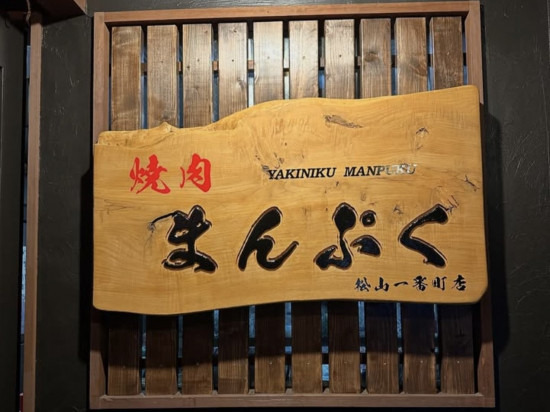 焼肉 YAKINIKU MANPUKU
まんぷく
松山一番町店